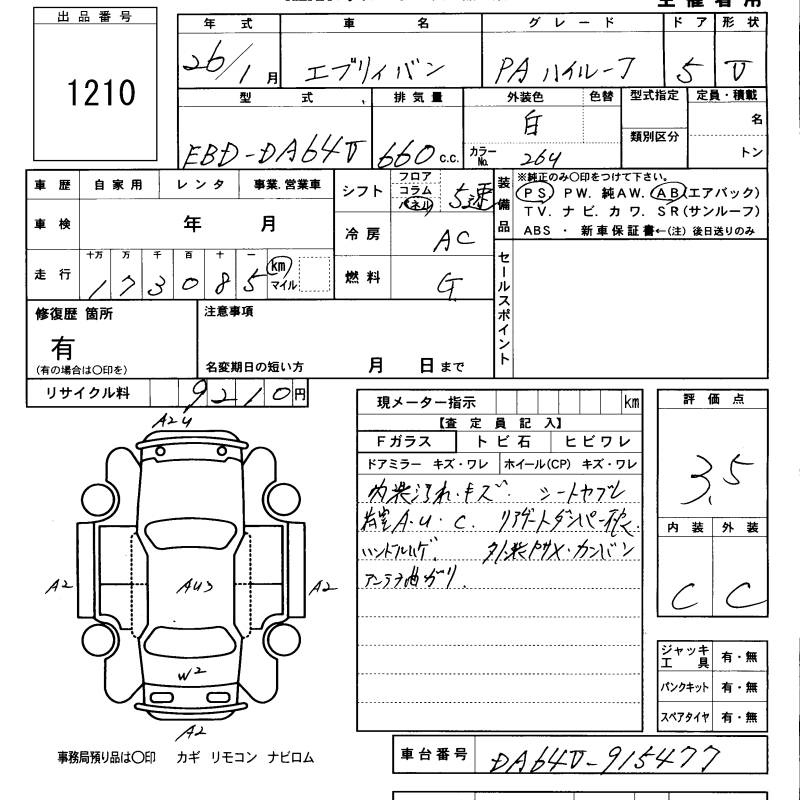 出品番号
1210
年式 車名 グレード ドア 形状
26/1月 エブリィバン PA ハイルーフ 5 V
型式 排気量 外装色 色替 型式指定 定員・積載
EBD-DA64V 660 c.c. 白 名
カラーNo. 264 類別区分 トン
車歴 自家用 レンタ 事業.営業車
シフト フロア コラム パネル 5速
装備品 ※純正のみ〇印をつけて下さい。
PS PW. 純AW. AB(エアバック)
TV. ナビ. カワ. SR(サンルーフ)
ABS ・ 新車保証書←(注) 後日送りのみ
車検 年 月
冷房 AC
走行 十万 万 千 百 十 一
173085 km マイル
燃料 G
セールスポイント
修復歴 箇所
有
(有の場合は〇印を)
注意事項
名変期日の短い方 月 日まで
リサイクル料 9210円
現メーター指示 km
【査定員記入】
Fガラス トビ石 ヒビワレ
ドアミラー キズ・ワレ ホイール(CP) キズ・ワレ
内装汚れ・キズ. シートヤブレ
A・U・C. リアゲートダンパー
ハンドルハゲ. 外装キズ・カンバン
アンテナ曲ガリ.
評価点
3.5
内装 外装
C C
A24
A2 AU3 A2
W2
A2
ジャッキ工具 有・無
パンクキット 有・無
スペアタイヤ 有・無
事務局預り品は〇印 カギ リモコン ナビロム
車台番号 DA64V-915477